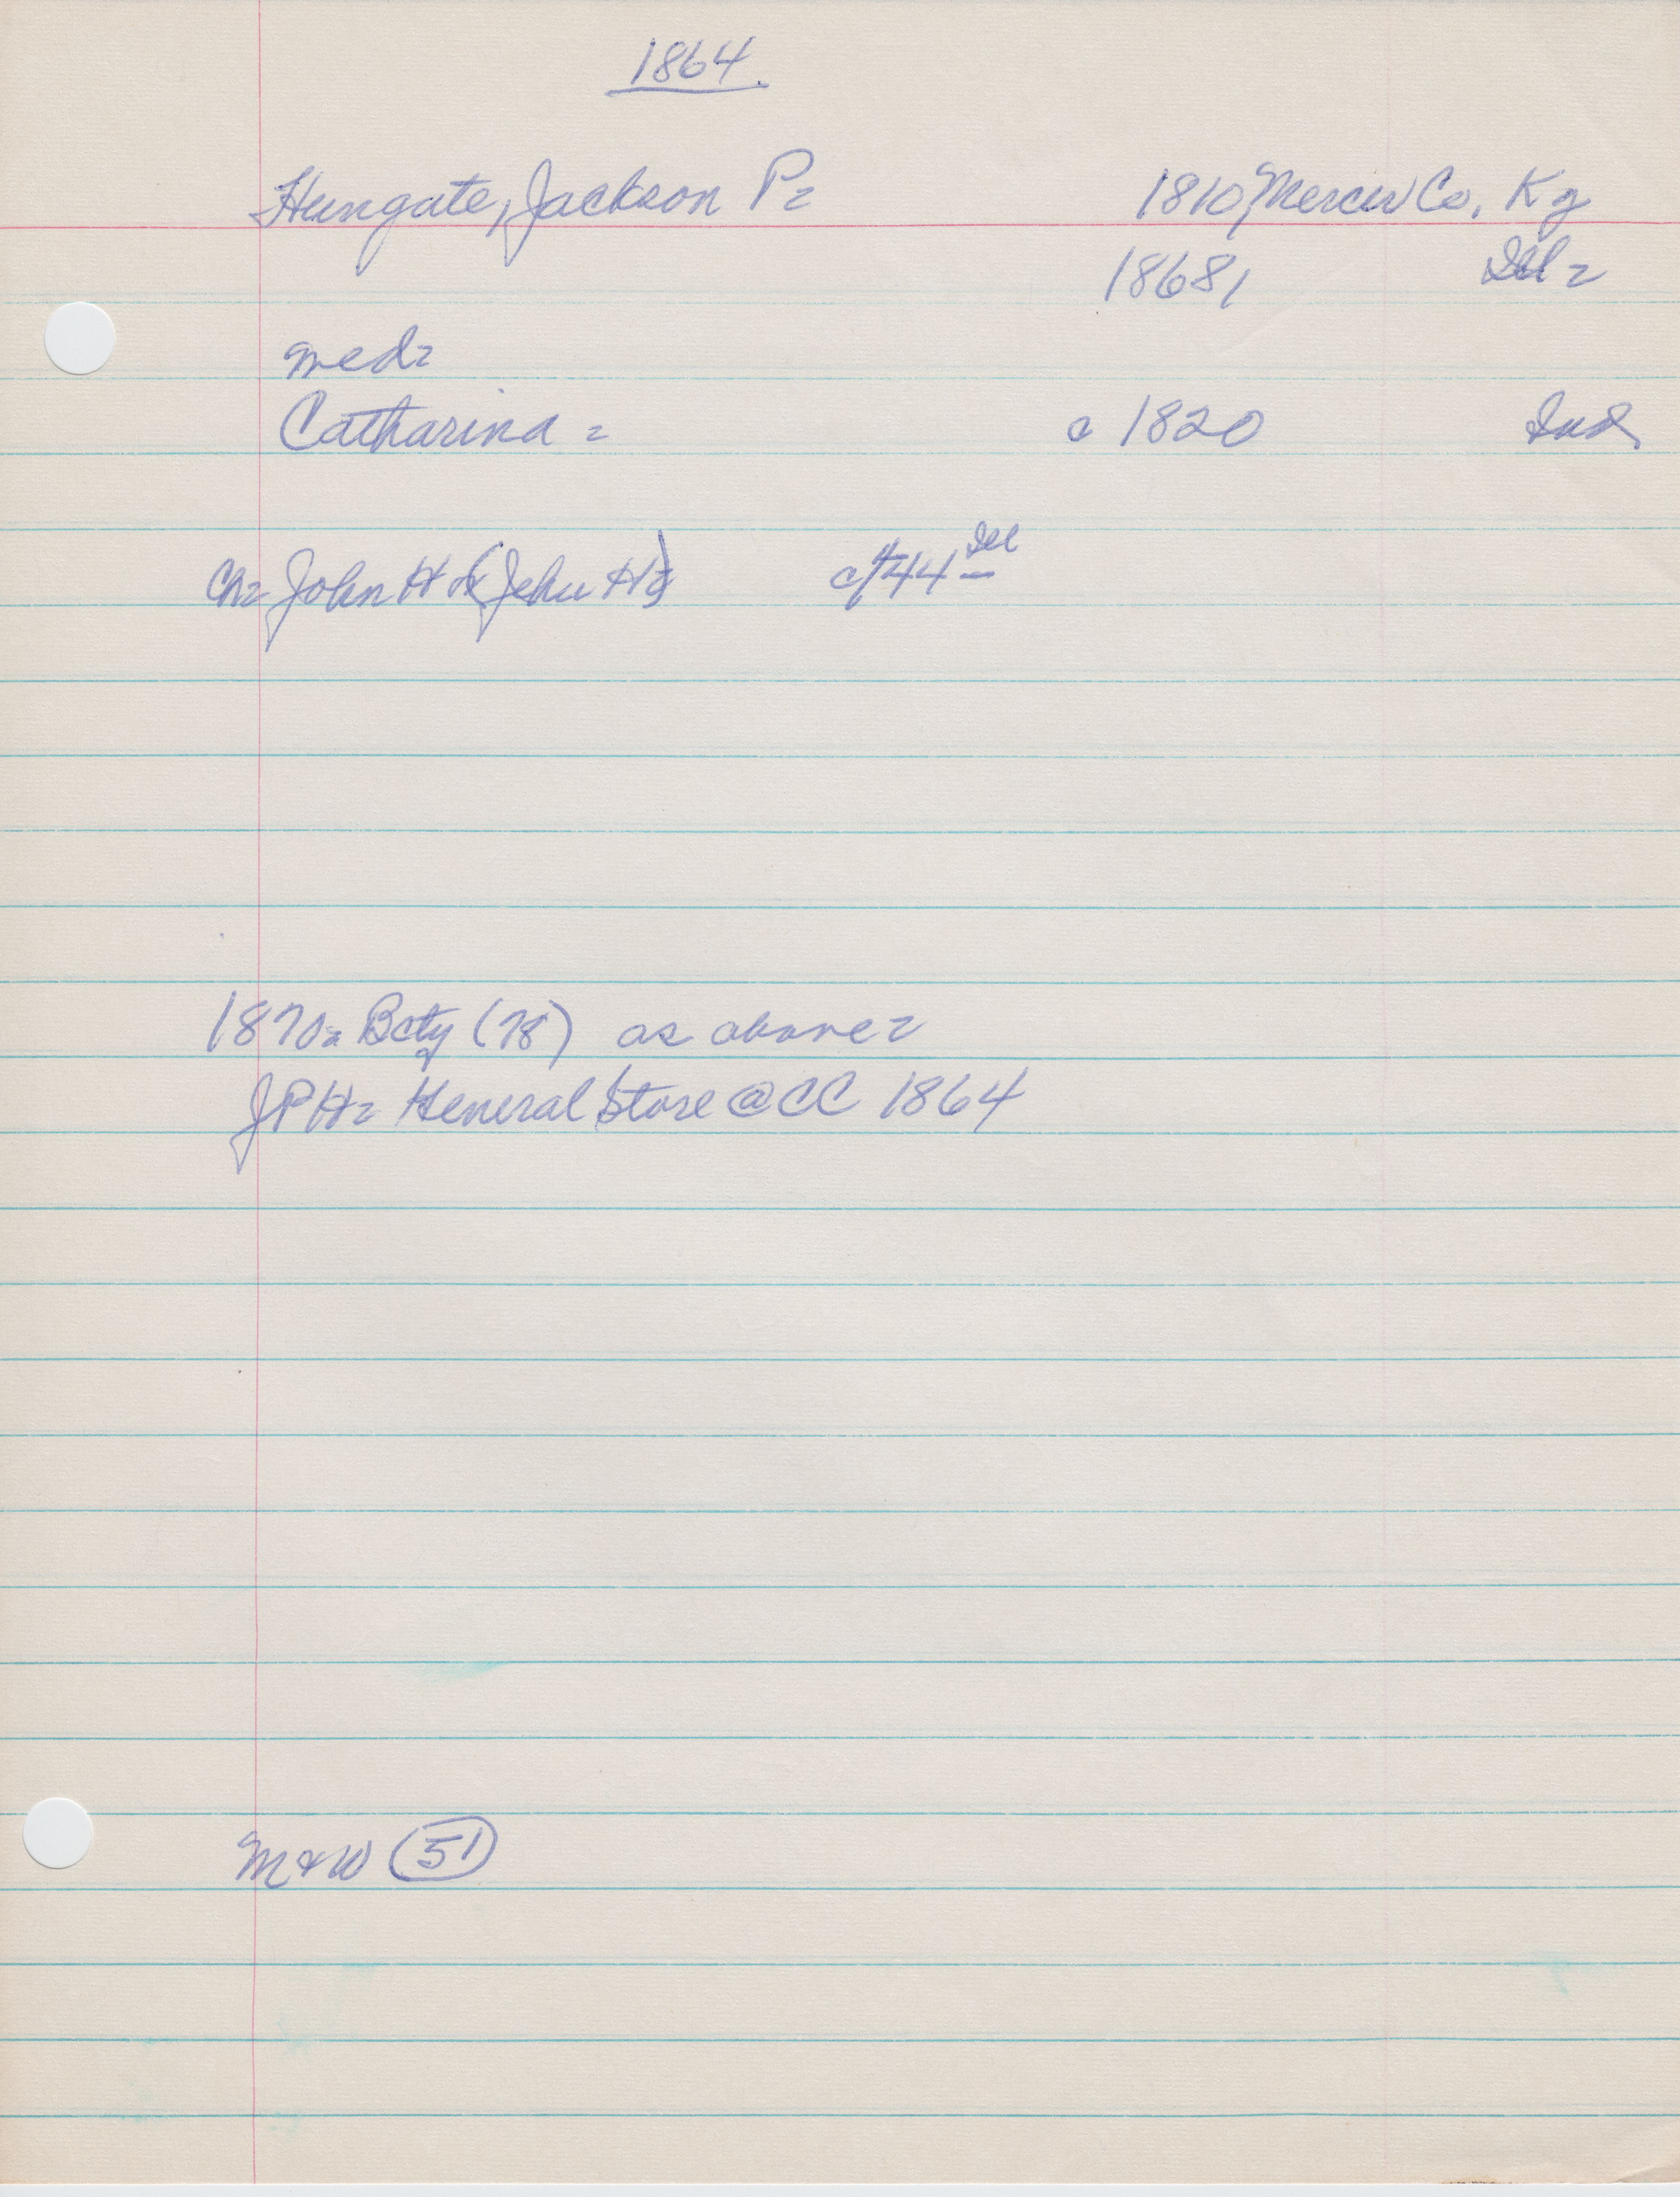 1864.
Hungate, Jackson P= 1810, Mercer Co, Ky
1868, Ill=
med=
Catharina = c 1820 Ind
Ch= John H or (Jehu H) c/44 Ill
1870= Bcty (78) as above=
JPH= General Store @ CC 1864
M & W (51)